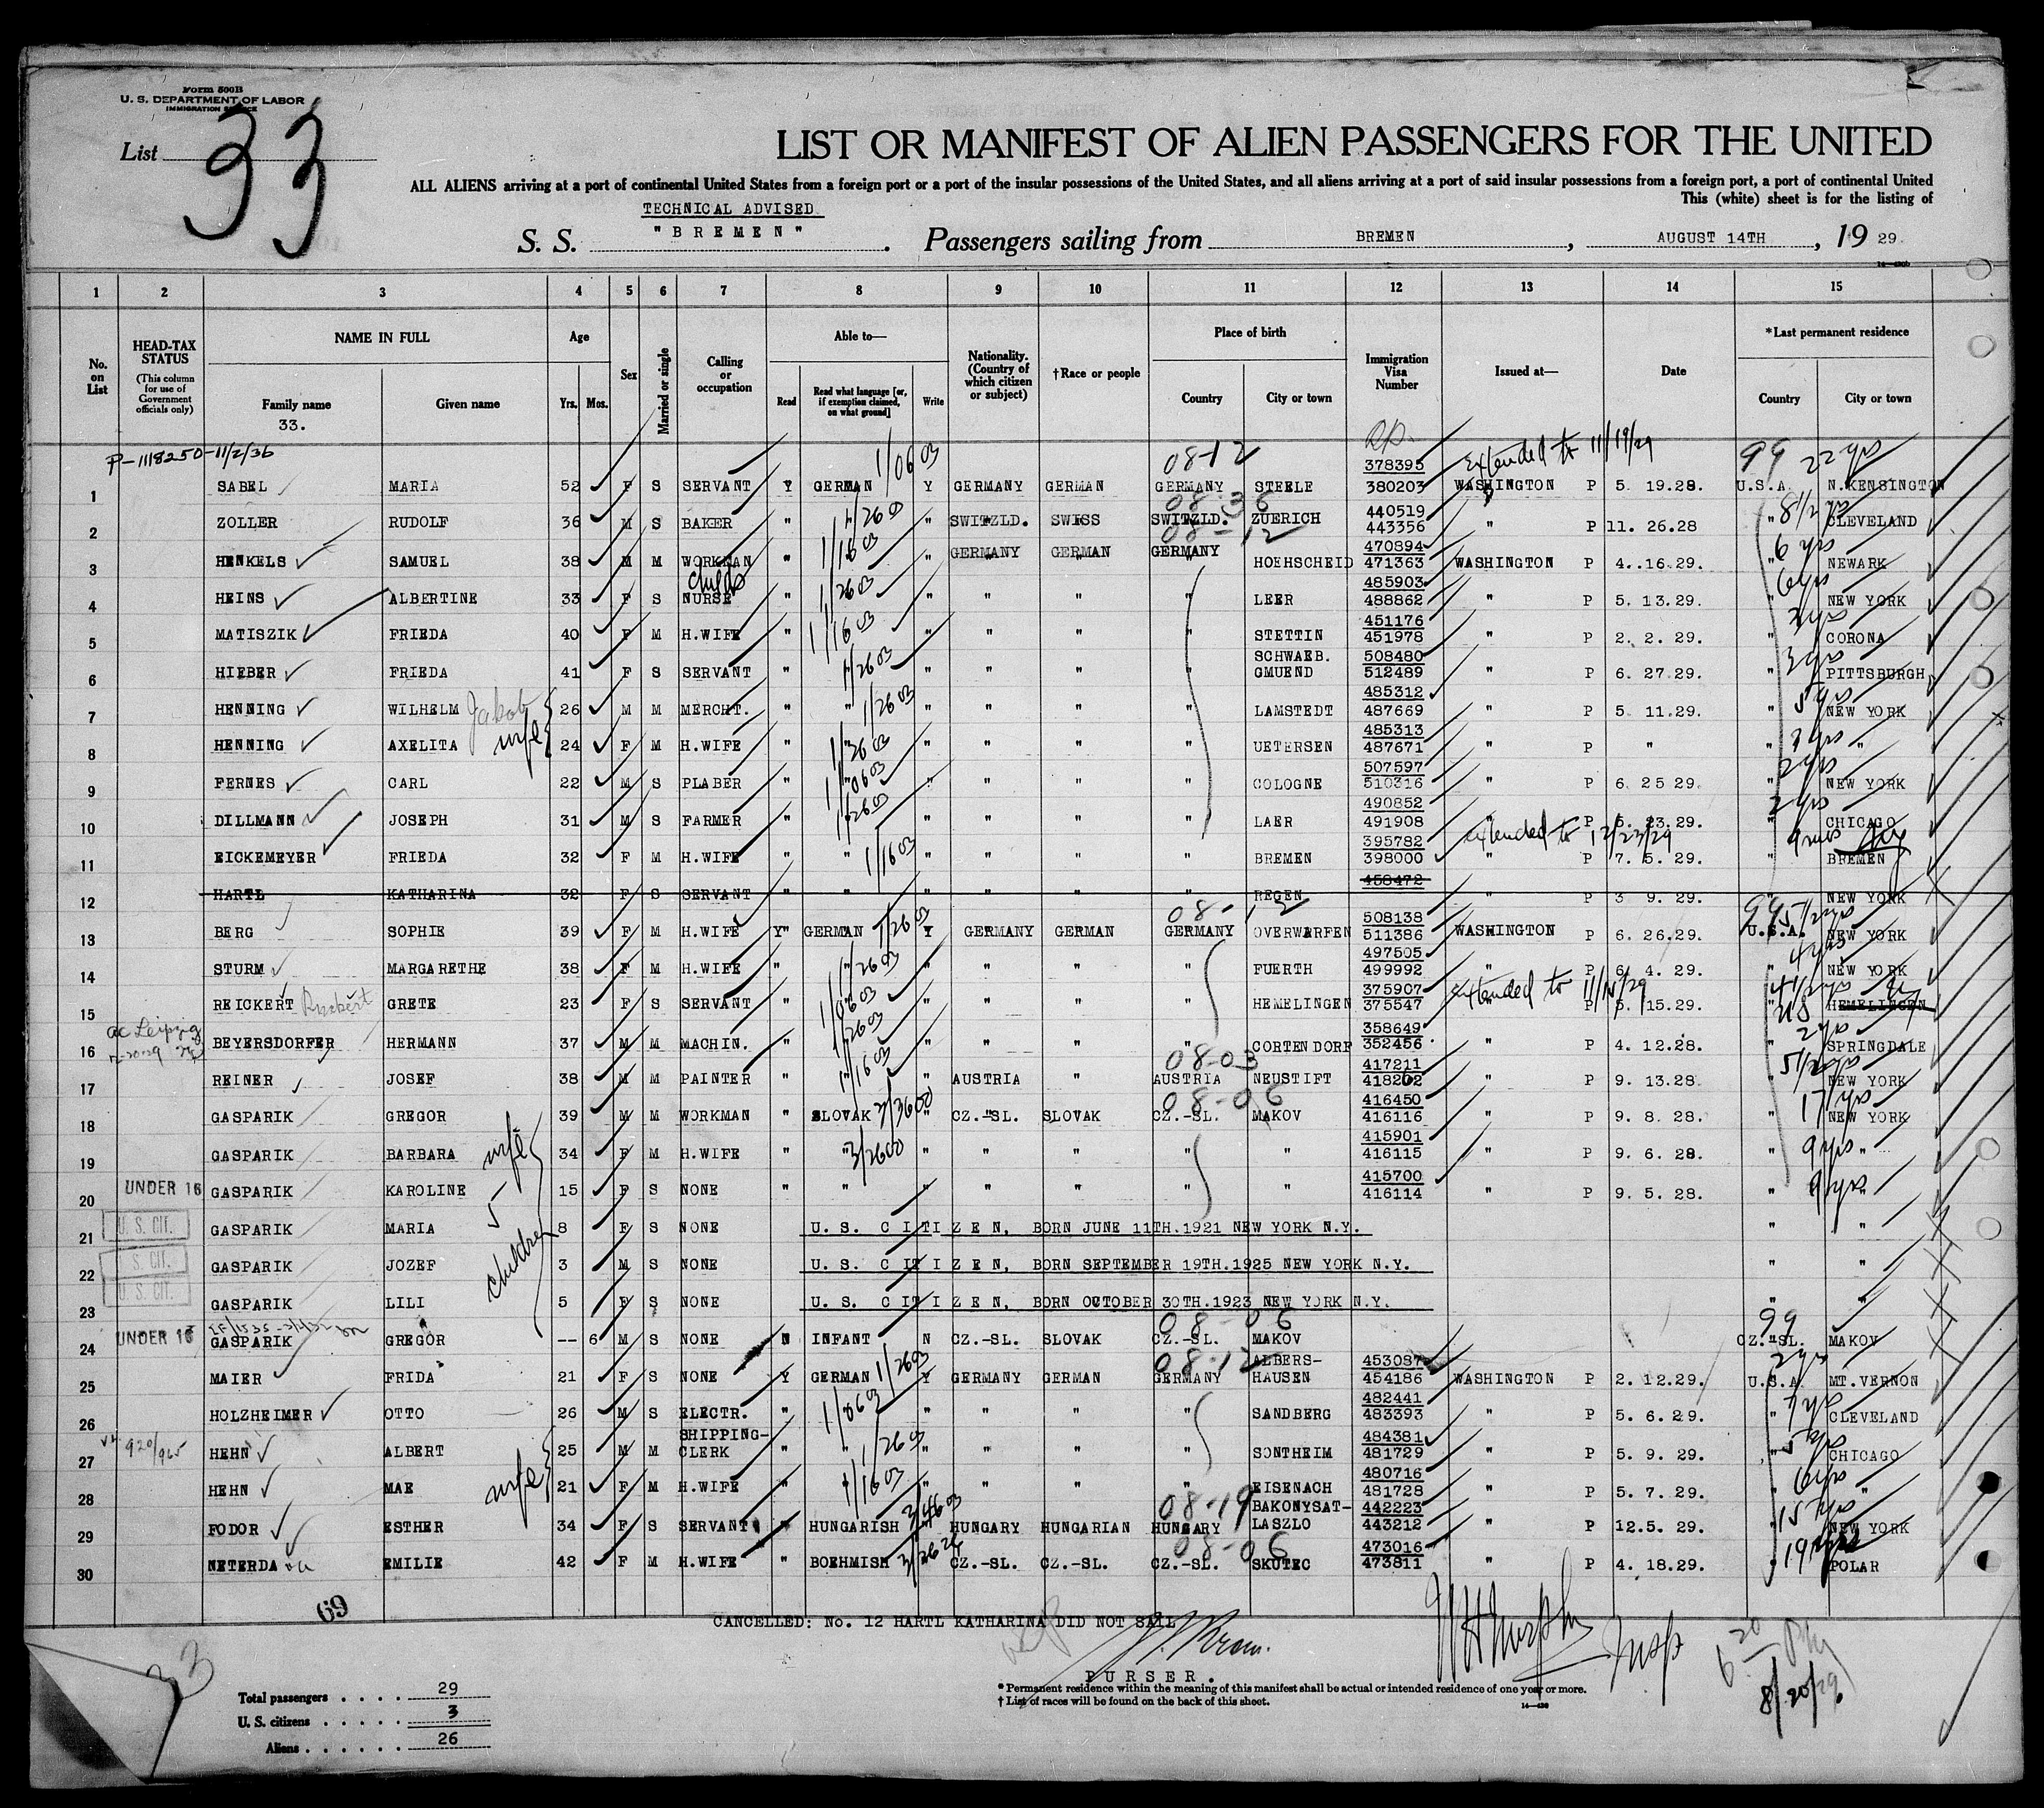 Form 500B
U. S. DEPARTMENT OF LABOR
IMMIGRATION SERVICE
List 33
LIST OR MANIFEST OF ALIEN PASSENGERS FOR THE UNITED
ALL ALIENS arriving at a port of continental United States from a foreign port or a port of the insular possessions of the United States, and all aliens arriving at a port of said insular possessions from a foreign port, a port of continental United
This (white) sheet is for the listing of
TECHNICAL ADVISED
S. S. "BREMEN". Passengers sailing from BREMEN, AUGUST 14TH, 19 29.
1 2 3 4 5 6 7 8 9 10 11 12 13 14 15
No. on List
HEAD-TAX STATUS (This column for use of Government officials only)
NAME IN FULL Family name Given name
33.
Age Yrs. Mos.
Sex
Married or single
Calling or occupation
Able to— Read Read what language [or, if exemption claimed, on what ground] Write
Nationality. (Country of which citizen or subject)
†Race or people
Place of birth Country City or town
Immigration Visa Number
Issued at—
Date
*Last permanent residence Country City or town
P-1118250-11/2/36 1/0603 08-12 378395 Extended to 11/19/29 99 22 yrs
1 SABEL MARIA 52 F S SERVANT Y GERMAN Y GERMANY GERMAN GERMANY STEELE 380203 WASHINGTON P 5. 19.28. U.S.A. N.KENSINGTON
1/2603 08-36 440519 8 1/2 yrs
2 ZOLLER RUDOLF 36 M S BAKER " " " SWITZLD. SWISS SWITZLD. ZUERICH 443356 " P 11. 26.28 " CLEVELAND
1/1603 08-12 470894 6 yrs
3 HENKELS SAMUEL 38 M M WORKMAN " " " GERMANY GERMAN GERMANY HOEHSCHEID 471363 WASHINGTON P 4..16.29. " NEWARK
childs 1/2603 485903 6 yrs
4 HEINS ALBERTINE 33 F S NURSE " " " " " " LEER 488862 " P 5. 13.29. " NEW YORK
1/1603 451176
5 MATISZIK FRIEDA 40 F M H.WIFE " " " " " " STETTIN 451978 " P 2. 2. 29. " CORONA
1/2603 SCHWAEB. 508480 3 yrs
6 HIEBER FRIEDA 41 F S SERVANT " " " " " " GMUEND 512489 " P 6. 27.29. " PITTSBURGH
1/2603 485312 5 yrs
7 HENNING WILHELM Jakob 26 M M MERCHT. " " " " " " LAMSTEDT 487669 " P 5. 11.29. " NEW YORK
1/2603 485313 3 yrs
8 HENNING AXELITA wife 24 F M H.WIFE " " " " " " UETERSEN 487671 " P " " "
1/0603 507597 2 yrs
9 FERNES CARL 22 M S PLABER " " " " " " COLOGNE 510316 " P 6. 25 29. " NEW YORK
1/2603 490852 2 yrs
10 DILLMANN JOSEPH 31 M S FARMER " " " " " " LAER 491908 " P 5. 23.29. " CHICAGO
1/1603 395782 Extended to 12/23/29 9 mos
11 EICKEMEYER FRIEDA 32 F M H.WIFE " " " " " " BREMEN 398000 " P 7. 5. 29. " BREMEN
458472
12 HARTL KATHARINA 32 F S SERVANT " " " " " " REGEN " P 3 9. 29. " NEW YORK
1/2603 08-12 508138 99 5 1/2 yrs
13 BERG SOPHIE 39 F M H.WIFE Y" GERMAN Y GERMANY GERMAN GERMANY OVERWARFEN 511386 WASHINGTON P 6. 26.29. U.S.A. NEW YORK
1/2603 497505 4 yrs
14 STURM MARGARETHE 38 F M H.WIFE " " " " " " FUERTH 499992 " P 6. 4. 29. " NEW YORK
1/0603 375907 Extended to 11/15/29 4 1/2 yrs
15 REICKERT GRETE 23 F S SERVANT " " " " " " HEMELINGEN 375547 " P 5. 15.29. US HEMELINGEN
ac Leipzig 1/2603 358649 2 yrs
16 BEYERSDORFER HERMANN 37 M M MACHIN. " " " " " " CORTENDORF 352456 " P 4. 12.28. " SPRINGDALE
1/1603 08-03 417211 5 1/2 yrs
17 REINER JOSEF 38 M M PAINTER " " " AUSTRIA " AUSTRIA NEUSTIFT 418202 " P 9. 13.28. " NEW YORK
3/3600 08-06 416450 17 yrs
18 GASPARIK GREGOR 39 M M WORKMAN " SLOVAK " CZ.-SL. SLOVAK CZ.-SL. MAKOV 416116 " P 9. 8. 28. " NEW YORK
3/2600 415901 9 yrs
19 GASPARIK BARBARA wife 34 F M H.WIFE " " " " " " " 416115 " P 9. 6. 28. " "
415700 9 yrs
20 UNDER 16 GASPARIK KAROLINE 15 F S NONE " " " " " " " 416114 " P 9. 5. 28. " "
5 children
21 U. S. CIT. GASPARIK MARIA 8 F S NONE U. S. CITIZEN, BORN JUNE 11TH.1921 NEW YORK N.Y. " "
22 U. S. CIT. GASPARIK JOZEF 3 M S NONE U. S. CITIZEN, BORN SEPTEMBER 19TH.1925 NEW YORK N.Y. " "
23 U. S. CIT. GASPARIK LILI 5 F S NONE U. S. CITIZEN, BORN OCTOBER 30TH.1923 NEW YORK N.Y. " "
08-06 99
24 UNDER 16 GASPARIK GREGOR -- 6 M S NONE N INFANT N CZ.-SL. SLOVAK CZ.-SL. MAKOV CZ.-SL. MAKOV
1/2603 08-12 ALBERS- 453087 2 yrs
25 MAIER FRIDA 21 F S NONE Y GERMAN Y GERMANY GERMAN GERMANY HAUSEN 454186 WASHINGTON P 2. 12.29. U.S.A. MT.VERNON
1/0603 482441
26 HOLZHEIMER OTTO 26 M S ELECTR. " " " " " " SANDBERG 483393 " P 5. 6. 29. " CLEVELAND
SHIPPING- 1/2603 484381 5 yrs
27 920/965 HEHN ALBERT 25 M M CLERK " " " " " " SONTHEIM 481729 " P 5. 9. 29. " CHICAGO
1/1603 480716 6 yrs
28 HEHN MAE wife 21 F M H.WIFE " " " " " " EISENACH 481728 " P 5. 7. 29. " "
3/4603 08-19 BAKONYSAT- 442223 15 yrs
29 FODOR ESTHER 34 F S SERVANT " HUNGARISH " HUNGARY HUNGARIAN HUNGARY LASZLO 443212 " P 12.5. 29. " NEW YORK
08-06 473016 19 yrs
30 NETERDA EMILIE 42 F M H.WIFE " BOEHMISH CZ.-SL. CZ.-SL. CZ.-SL. SKUTEC 473811 " P 4. 18.29. " POLAR
69
CANCELLED: No. 12 HARTL KATHARINA DID NOT SAIL
PURSER.
W H Murphy Insp
8/20/29
33
* Permanent residence within the meaning of this manifest shall be actual or intended residence of one year or more.
† List of races will be found on the back of this sheet.
Total passengers . . . . 29
U. S. citizens . . . . . 3
Aliens . . . . . . 26